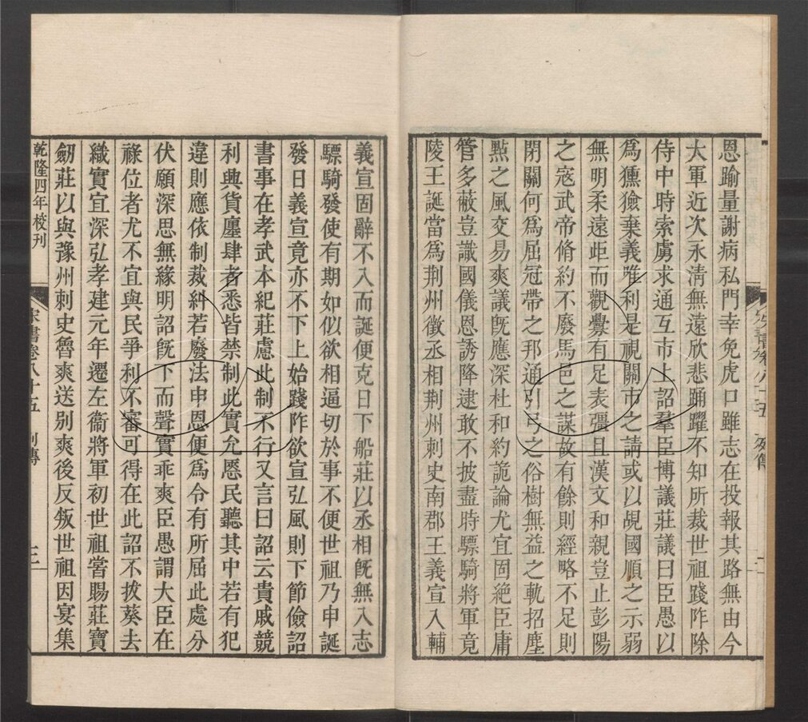 恩踰量謝病私門幸免虎口雖志在投報其路無由今
大軍近次永清無遠欣悲踊躍不知所裁世祖踐阼除
侍中時索虜求通互市上詔羣臣博議莊議曰臣愚以
為獯獫棄義唯利是視關市之請或以覘國順之示弱
無明柔遠距而觀釁有足表彊且漢文和親豈止彭陽
之寇武帝脩約不廢馬邑之謀故有餘則經略不足則
閉關何為屈冠帶之邦通引弓之俗樹無益之軌招塵
點之風交易爽議旣應深杜和約詭論尤宜固絶臣庸
管多蔽豈識國儀恩誘降逮敢不披盡時驃騎將軍竟
陵王誕當為荆州徵丞相荆州刺史南郡王義宣入輔
宋書卷八十五 列傳 二
義宣固辭不入而誕便克日下船莊以丞相旣無入志
驃騎發使有期如似欲相逼切於事不便世祖乃申誕
發日義宣竟亦不下上始踐阼欲宣弘風則下節儉詔
書事在孝武本紀莊慮此制不行又言曰詔云貴戚競
利興貨廛肆者悉皆禁制此實允愜民聽其中若有犯
違則應依制裁糾若廢法申恩便為令有所屈此處分
伏願深思無緣明詔旣下而聲實乖爽臣愚謂大臣在
祿位者尤不宜與民爭利不審可得在此詔不拔葵去
織實宜深弘孝建元年遷左衞將軍初世祖嘗賜莊寶
劒莊以與豫州刺史魯爽送别爽後反叛世祖因宴集
乾隆四年校刊 宋書卷八十五 列傳 三